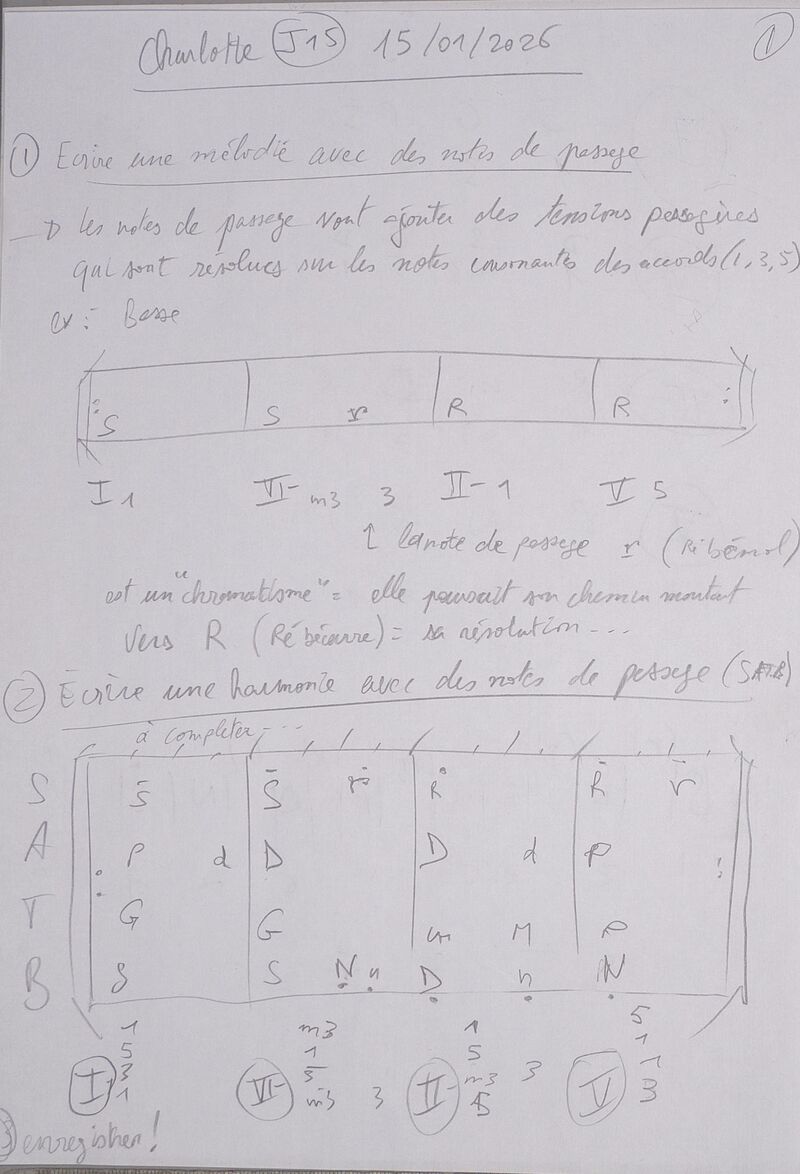 Charlotte J15 15/01/2026 1
1 Ecrire une mélodie avec des notes de passage
→ Les notes de passage vont ajouter des tensions passagères
qui sont résolues sur les notes consonantes des accords (1, 3, 5)
ex : Basse
S S r R R
I 1 VI- m3 3 II- 1 V 5
↑ la note de passage r (Ré bémol)
est un "chromatisme" = elle poursuit son chemin montant
vers R (Ré bécarre) = sa résolution ...
2 Ecrire une harmonie avec des notes de passage (SATB)
à completer ...
S S S r R R r
A P d D D d P
T G G M P
B S S N n D n N
1 m3 1 5
5 1 5 1
3 5 m3 3 1
1 m3 3 3
I VI- II- V
3 enregistrer !